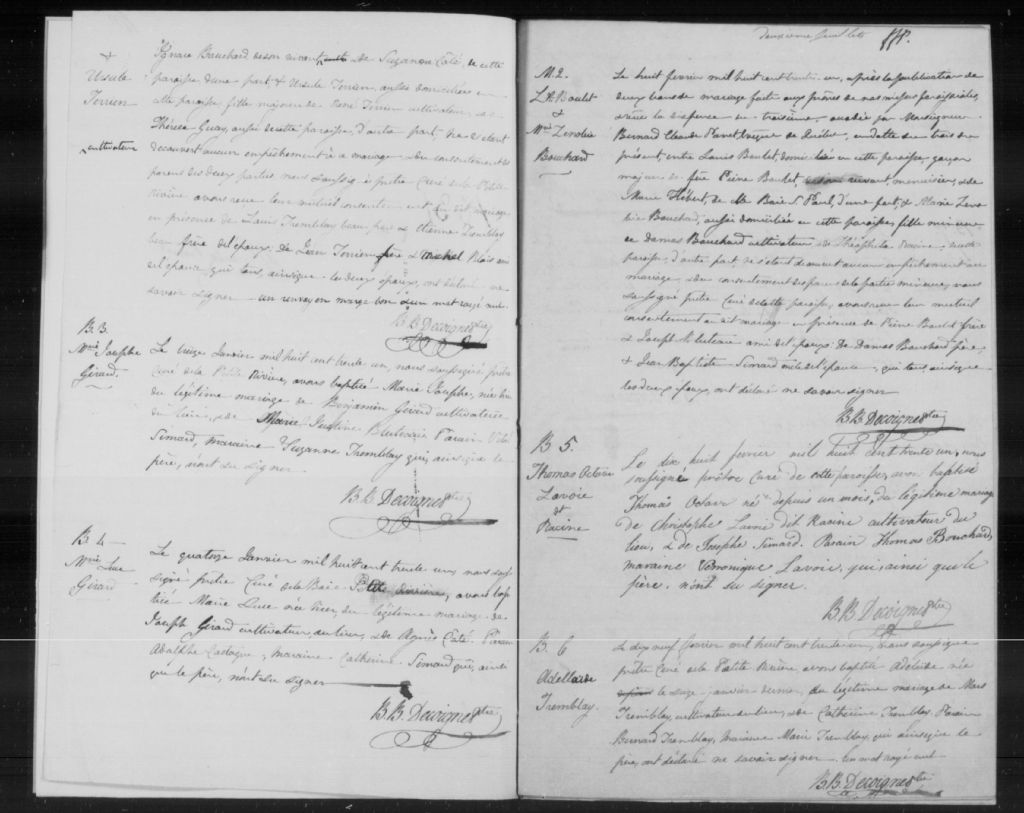 +
Ursule
Terrien
cultivateur
Ignace Bouchard de son vivant de Suzanne Coté, de cette
paroisse d'une part, & Ursule Terrien, aussi domiciliée en
cette paroisse, fille majeure de René Terrien cultivateur, & de
Thérèse Guay, aussi de cette paroisse, d'autre part ne s'étant
découvert aucun empêchement à ce mariage & du consentement des
parens des deux parties nous soussigné prêtre Curé de la Petite
Rivière avons reçu leur mutuel consentement en dit mariage
en présence de Louis Tremblay beau père & Etienne Tremblay
beau frère de l'époux, de Jean Terrien frère & Michel Blais ami
de l'épouse, qui tous, ainsi que les deux époux, ont déclaré ne
savoir signer un renvoy en marge bon & un mot rayé nul.
B. B. Decoigne ptre
B. 3.
Mrie Josephe
Girard.
Le treize Janvier mil huit cent trente un, nous soussigné prêtre
Curé de la Petite Rivière, avons baptisé Marie Josephe, née hier
du légitime mariage de Benjamin Girard cultivateur
du lieu, & de Marie Justine Bluteau Parain
Simard, maraine Suzanne Tremblay qui, ainsi que le
père, n'ont su signer
B. B. Decoigne ptre
B. 4
Mrie Luce
Girard
Le quatorze Janvier mil huit cent trente un, nous sous-
signé prêtre Curé de la Baie Petite Rivière, avons bap-
tisée Marie Luce née hier, du légitime mariage de
Joseph Girard cultivateur du lieu, & de Agnès Coté. Parain
Adolphe Castagne, maraine Catherine Simard qui, ainsi
que le père, n'ont su signer
B. B. Decoigne ptre
Deuxieme feuillet
M. 2.
L. Boulet
&
Mrie Zenobie
Bouchard
Le huit fevrier mil huit cent trente un, après la publication de
deux bans de mariage fait aux prônes de nos messes paroissiales,
& vue la dispense du troisième, accordée par Monseigneur
Bernard Claude Panet evêque de Québec, en datte du trois du
présent, entre Louis Boulet, domicilié en cette paroisse, garçon
majeur de feu Pierre Boulet, vivant, menuisier, & de
Marie Hébert, de la Baie S. Paul, d'une part, & Marie Zeno-
bie Bouchard, aussi domiciliée en cette paroisse, fille mineure
de Damas Bouchard cultivateur, & de Théophile, de cette
paroisse, d'autre part, ne s'étant découvert aucun empêchement au
mariage, & du consentement des parens de la partie mineure, nous
soussigné prêtre Curé de cette paroisse, avons reçu leur mutuel
consentement en dit mariage en présence de Pierre Boulet frère
& Joseph Bluteau ami de l'époux: de Damas Bouchard père,
& Jean Baptiste Simard oncle de l'épouse, qui tous ainsi que
les deux époux, ont déclaré ne savoir signer
B. B. Decoigne ptre
B 5.
Thomas Octave
Lavoie
dt
Racine
Le dix huit fevrier mil huit cent trente un, nous
soussigné prêtre Curé de cette paroisse, avons baptisé
Thomas Octave né depuis un mois, du légitime mariage
de Christophe Lavoie dit Racine cultivateur du
lieu, & de Josephe Simard. Parain Thomas Bouchard,
maraine Véronique Lavoie, qui, ainsi que le
père, n'ont su signer.
B. B. Decoigne ptre
B. 6
Adellaide
Tremblay.
Le dix neuf fevrier mil huit cent trente un, nous soussigné
prêtre Curé de la Petite Rivière avons baptisé Adelaide née
le seize janvier dernier, du légitime mariage de Mars
Tremblay, cultivateur du lieu, & de Catherine Tremblay. Parain
Bernard Tremblay, Maraine Marie Tremblay, qui ainsi que le
père, ont déclaré ne savoir signer. un mot rayé nul
B. B. Decoigne ptre